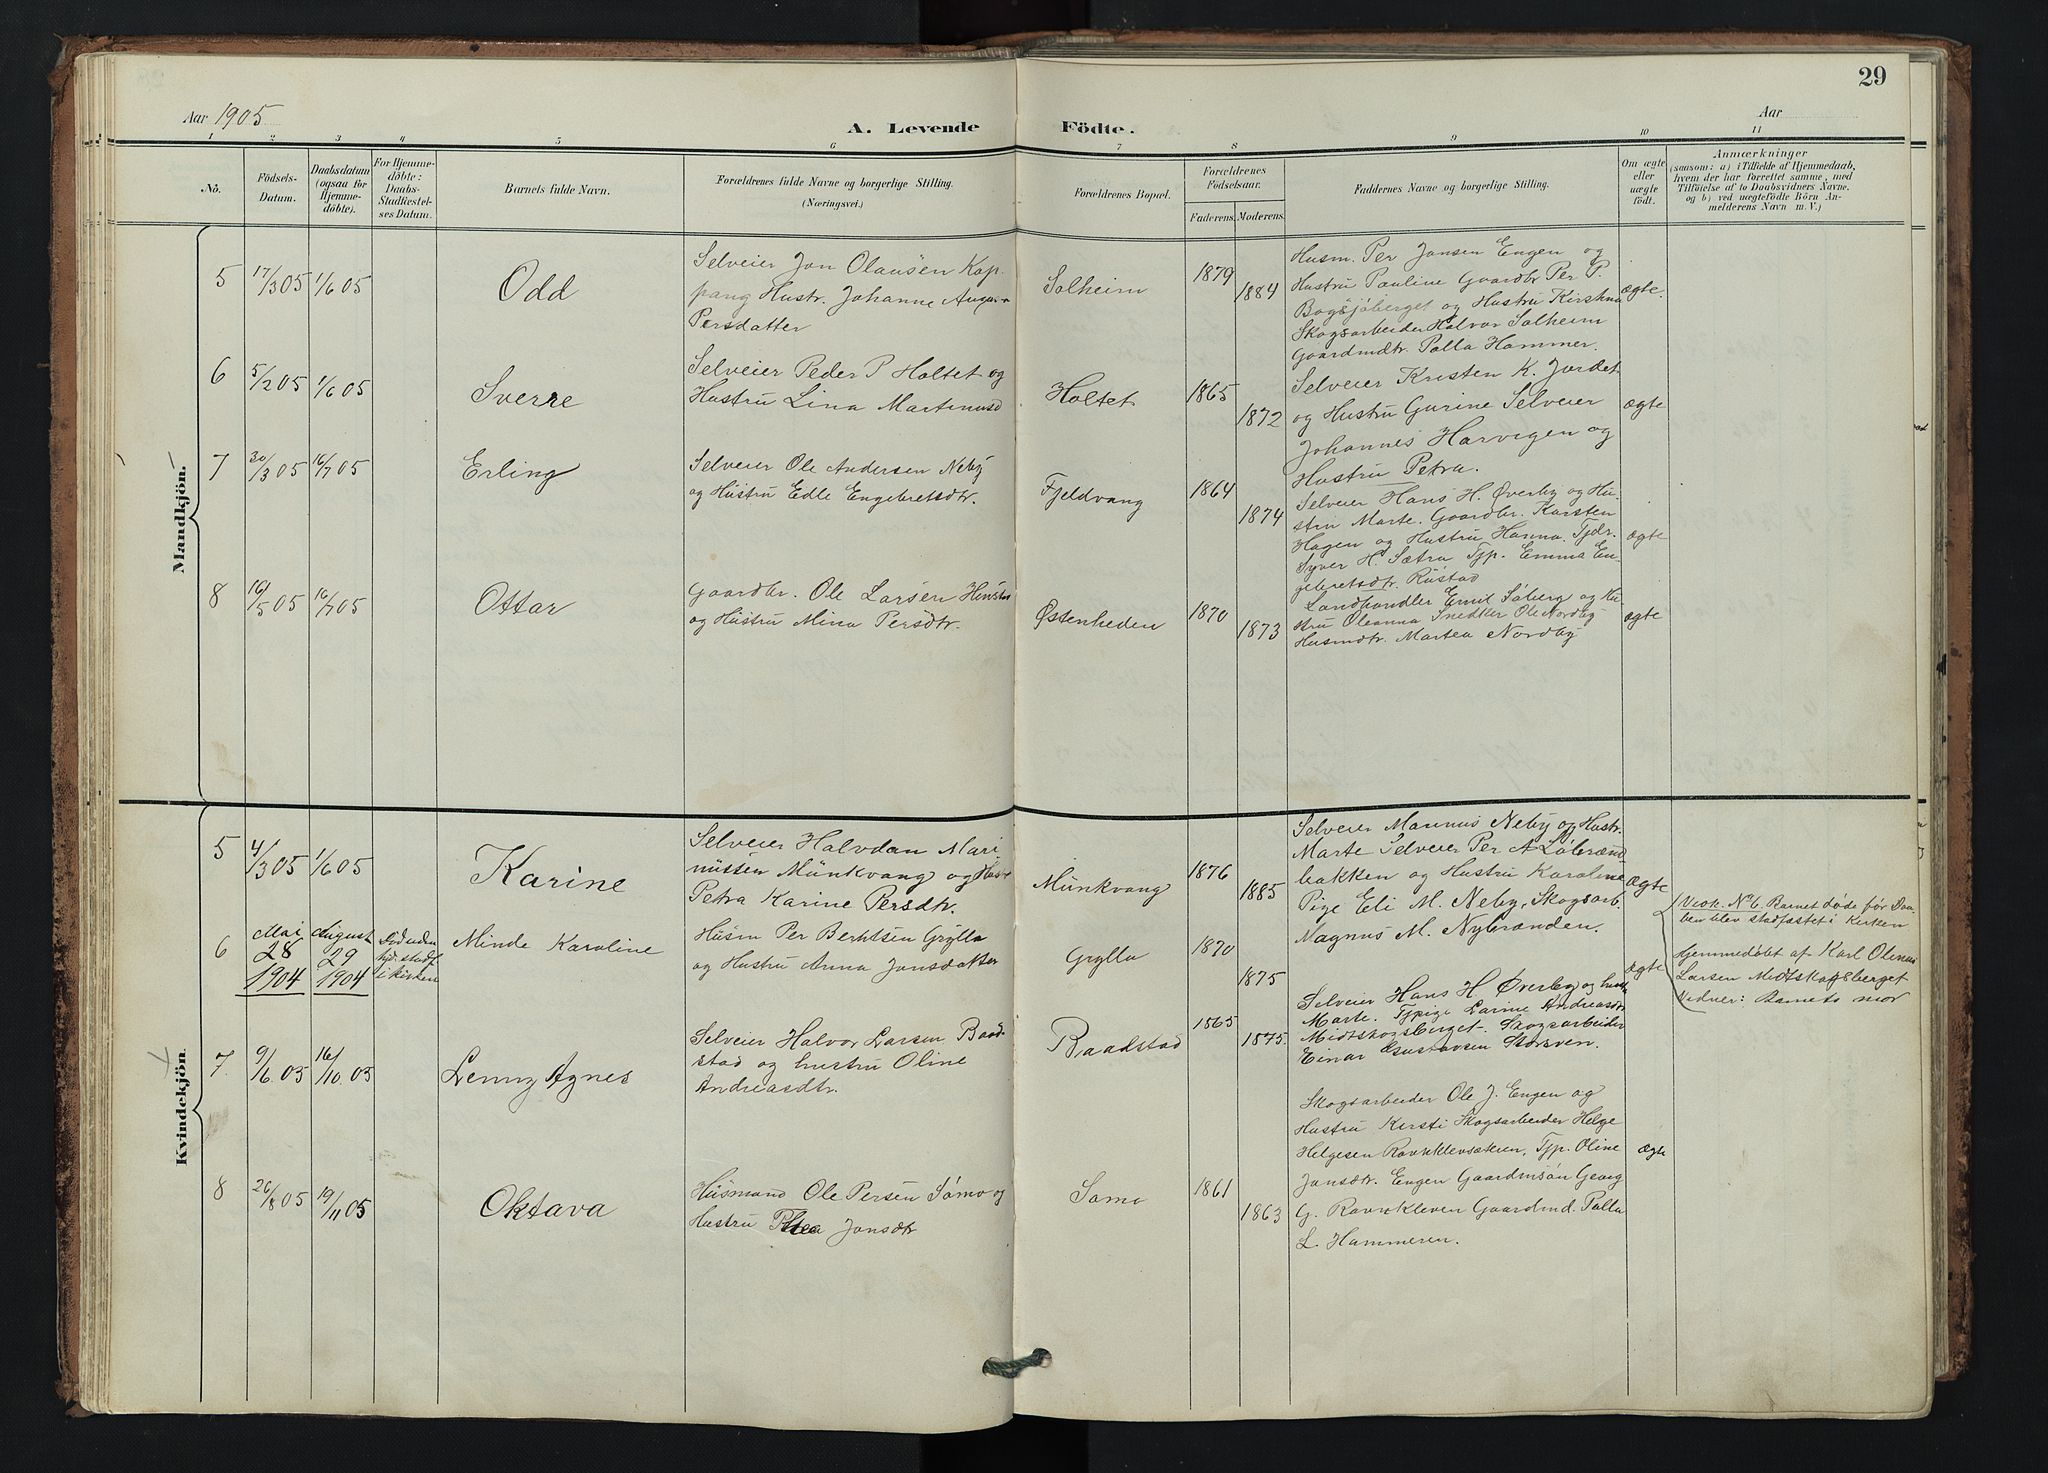 29
Aar 1905
A. Levende Födte.
Aar
1 2 3 4 5 6 7 8 9 10 11
No.
Födsels-
Datum.
Daabsdatum
(ogsaa for
Hjemme-
döbte).
For Hjemme-
döbte:
Daabs-
Stadfæstel-
ses Datum.
Barnets fulde Navn.
Forældrenes fulde Navne og borgerlige Stilling.
(Næringsvei.)
Forældrenes Bopæl.
Forældrenes
Födselsaar.
Faderens. Moderens.
Faddernes Navne og borgerlige Stilling.
Om ægte
eller
uægte
födt.
Anmærkninger
(saasom: a) i Tilfælde af Hjemmedaab,
hvem der har forrettet samme, med
Tilföielse af to Daabsvidners Navne.
og b) ved uægtefödte Börn An-
melderens Navn m. V.)
Mandkjön.
5 17/3 05 1/6 05 Odd
Selveier Jon Olausen Kop-
pang Hustr. Johanne
Persdatter
Solheim 1879 1884
Husm. Per Jonsen Engen og
Hustru Pauline Gaardbr Per P.
Bogsjöberget og Hustru
Skogsarbeider Halvor Solheim
Gaardmdtr. Palla Hammer.
ægte.
6 5/2 05 1/6 05 Sverre
Selveier Peder P Holtet og
Hustru Lina Martinusd
Holtet 1865 1872
Selveier Kristen K. Jordet
og Hustru Gurine Selveier
Johannes Harvigen og
Hustru Petra.
ægte
7 30/3 05 16/7 05 Erling
Selveier Ole Andersen Neby
og Hustru Edle Engebretsdtr.
Fjeldvang 1864 1874
Selveier Hans H. Øverby og Hu-
stru Marte. Gaardbr. Karsten
Hagen og Hustru Hanna. Tjdr.
Syver H. Sætra Tjp. Emma En-
gebretsdtr. Rústad
ægte
8 16/5 05 16/7 05 Ottar
Gaardbr. Ole Larsen
og Hústru Mina Persdtr.
Østenheden 1870 1873
Landhandler Emil Söberg og Hu
stru Oleanna Snedker Ole Nordby
Husmdtr. Martea Nordby
ægte
Kvindekjön.
5 4/3 05 1/6 05 Karine
Selveier Halvdan Mari
nússen Múnkvang og
Petra Karine Persdtr.
Múnkvang 1876 1885
Selveier Magnus Neby og Hustr.
Marte Selveier Per A Löbrænd-
bakken og Hustru Karoline
Pige Eli M. Neby, Skogsarb.
Magnus M. Nybrænden.
ægte
6 Mai 28 1904 August 29 1904
i kirken
Minde Karoline
Húsm Per Berntsen Grylla
og Hustru Anna Jonsdatter
Grylla 1870 1875
ægte
Vedk. No 6. Barnet døde før Daa-
ben blev stadfæstet i Kirken
Hjemmedøbt af Karl Olenius
Larsen Midtskogsberget
Vidner: Barnets mor
7. 9/6. 05 16/10. 05 Lenny Agnes
Selveier Halvor Larsen Baad-
stad og hustru Oline
Andreasdtr.
Baadstad 1865 1875.
Selveier Hans H Øverby og hustr
Marte. Tjpige Larine Andreasdtr
Midtskogsberget. Skogsarbeider
Einar Gustavsen Storsven.
8 26/8 05 19/11 05 Oktava
Húsmand Ole Persen Sómo og
Hustru Jonsdtr
Somo 1861 1863
Skogsarbeider Ole J. Engen og
Hustru Kirsti Skogsarbeider Helge
Helgesen Tjp. Oline
Jonsdtr. Engen Gaardmsøn Georg
G. Ravnkleven Gaardmd. Palla
L. Hammeren.
ægte